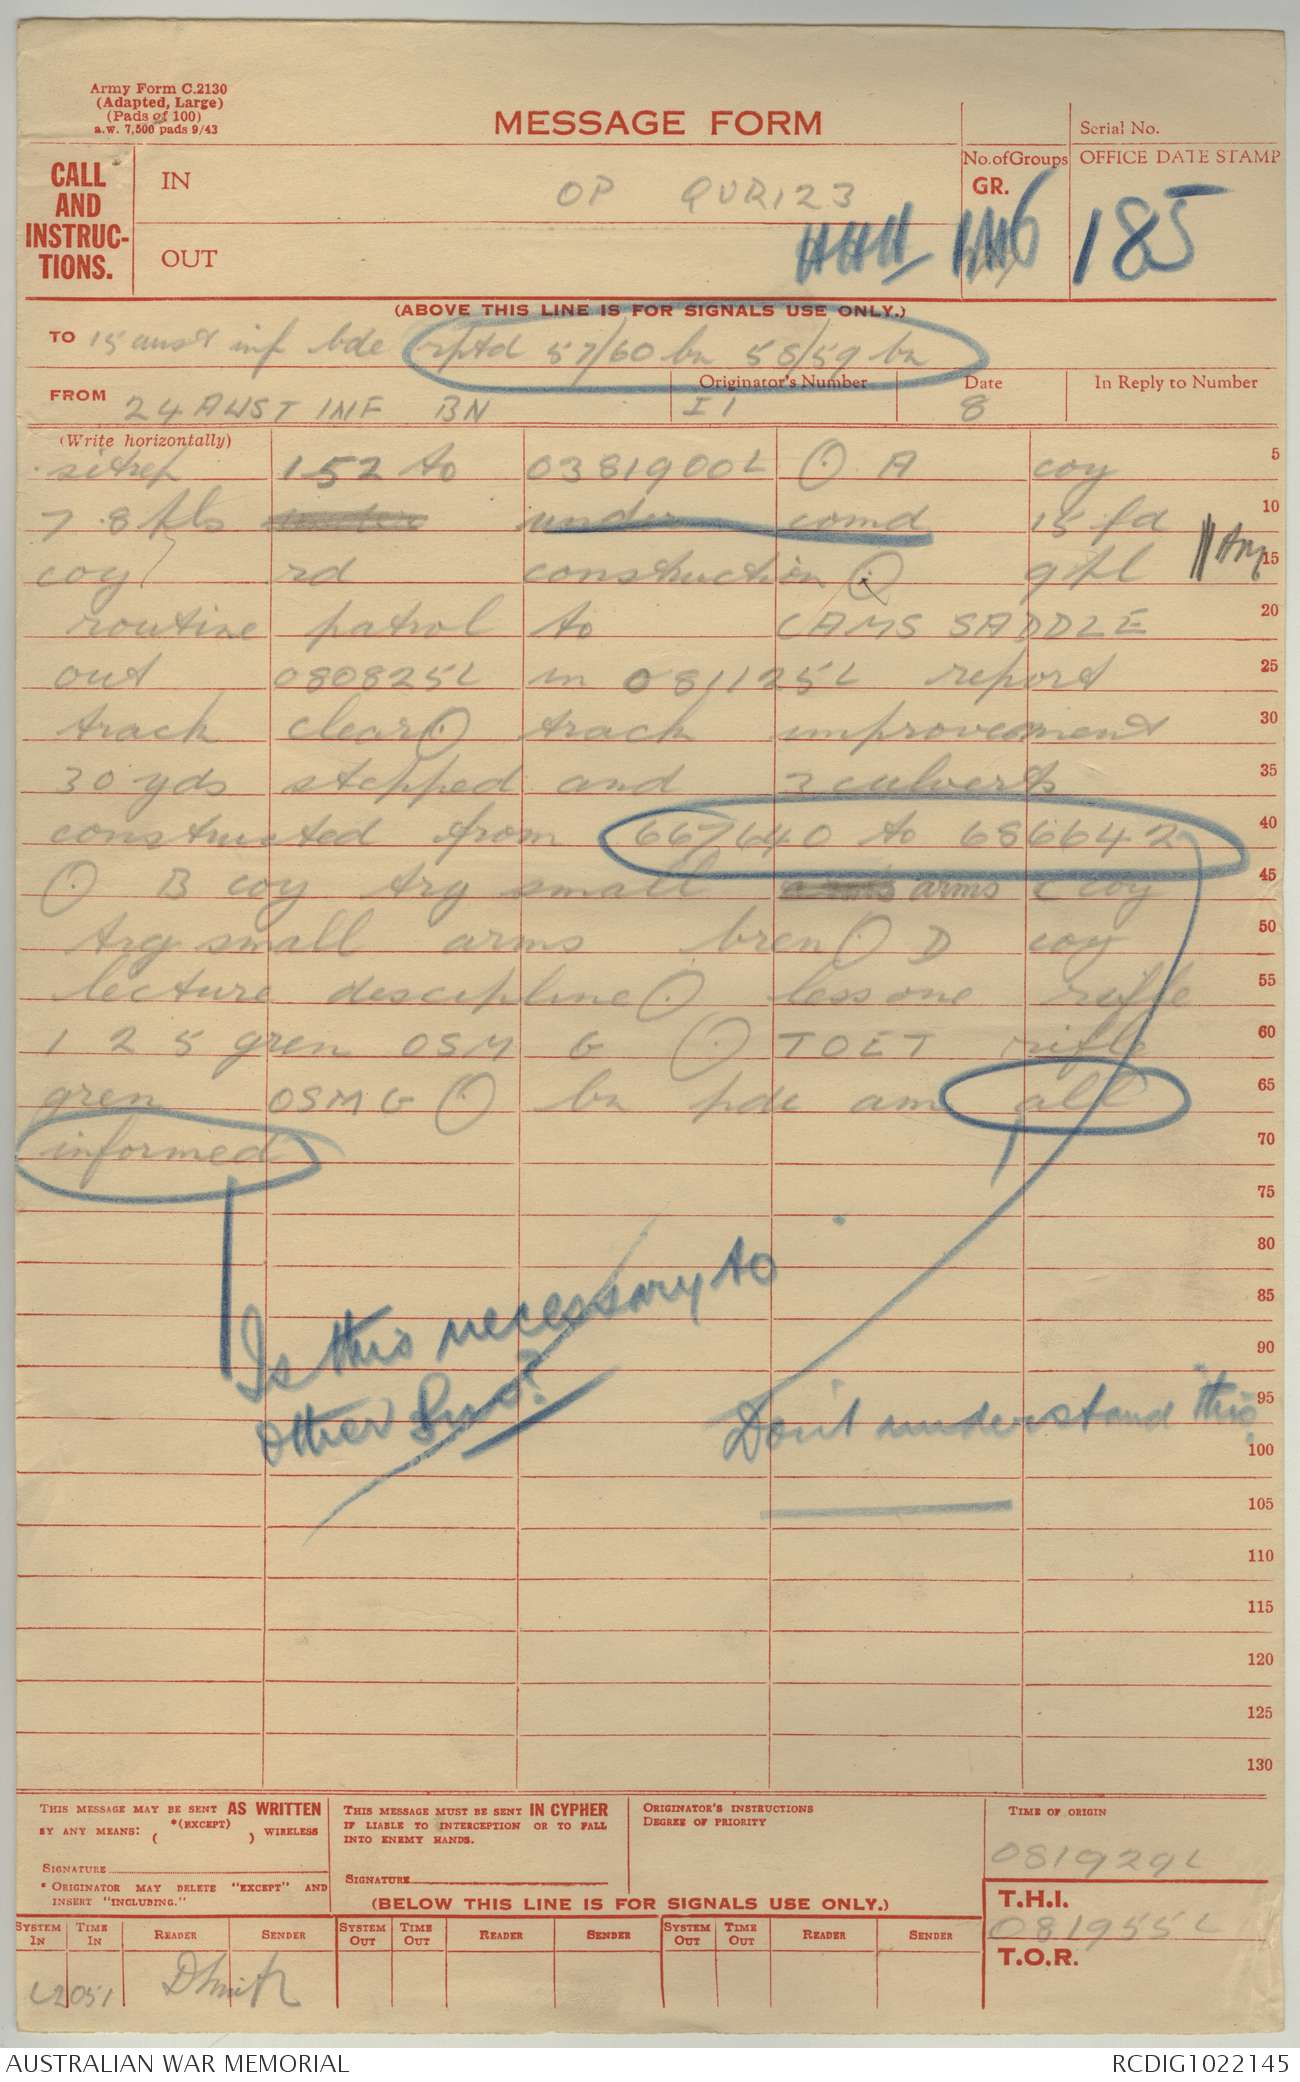 Army Form C.2130
(Adapted, Large)
(Pads of 100)
a.w. 7,500 pads 9/43
MESSAGE FORM
Serial No.
CALL AND INSTRUC-TIONS.
IN
OP QVR123
No. of Groups
GR.
OFFICE DATE STAMP
OUT
185
(ABOVE THIS LINE IS FOR SIGNALS USE ONLY.)
TO 15 aust inf bde rptd 57/60 bn 58/59 bn
FROM 24 AUST INF BN
Originator's Number
I1
Date
8
In Reply to Number
(Write horizontally)
sitrep 152 to 0381900L ⊙ A coy 5
7 8 pls under comd 15 fd 10
coy rd construction ⊙ 9 pl 15
routine patrol to CAMS SADDLE 20
out 080825L in 081125L report 25
track clear ⊙ track improvement 30
30 yds stepped and 2 culverts 35
constructed from 667640 to 686642 40
⊙ B coy trg small arms C coy 45
trg small arms bren ⊙ D coy 50
lecture descipline ⊙ less one rifle 55
1 2 5 gren OSM G ⊙ TOET rifle 60
gren OSMG ⊙ bn pde am all 65
informed 70
75
80
Is this necessary to 85
90
other Bns? Don't understand this 95
100
105
110
115
120
125
130
THIS MESSAGE MAY BE SENT AS WRITTEN
BY ANY MEANS: *(EXCEPT) ( ) WIRELESS
SIGNATURE
* ORIGINATOR MAY DELETE "EXCEPT" AND
INSERT "INCLUDING."
THIS MESSAGE MUST BE SENT IN CYPHER
IF LIABLE TO INTERCEPTION OR TO FALL
INTO ENEMY HANDS.
SIGNATURE
ORIGINATOR'S INSTRUCTIONS
DEGREE OF PRIORITY
TIME OF ORIGIN
081929L
(BELOW THIS LINE IS FOR SIGNALS USE ONLY.)
T.H.I.
081955L
T.O.R.
SYSTEM IN TIME IN READER SENDER SYSTEM OUT TIME OUT READER SENDER SYSTEM OUT TIME OUT READER SENDER
L2051 DSmith
AUSTRALIAN WAR MEMORIAL RCDIG1022145